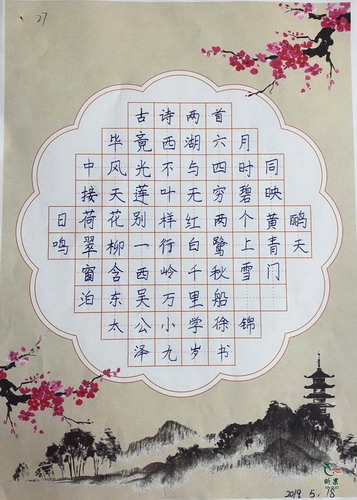 27
古诗两首
毕竟西湖六月
中风光不与四时同
接天莲叶无穷碧映
日荷花别样红两个黄鹂
鸣翠柳一行白鹭上青天
窗含西岭千秋雪门
泊东吴万里船
太公小学徐锦
泽九岁书
2019 5. 18